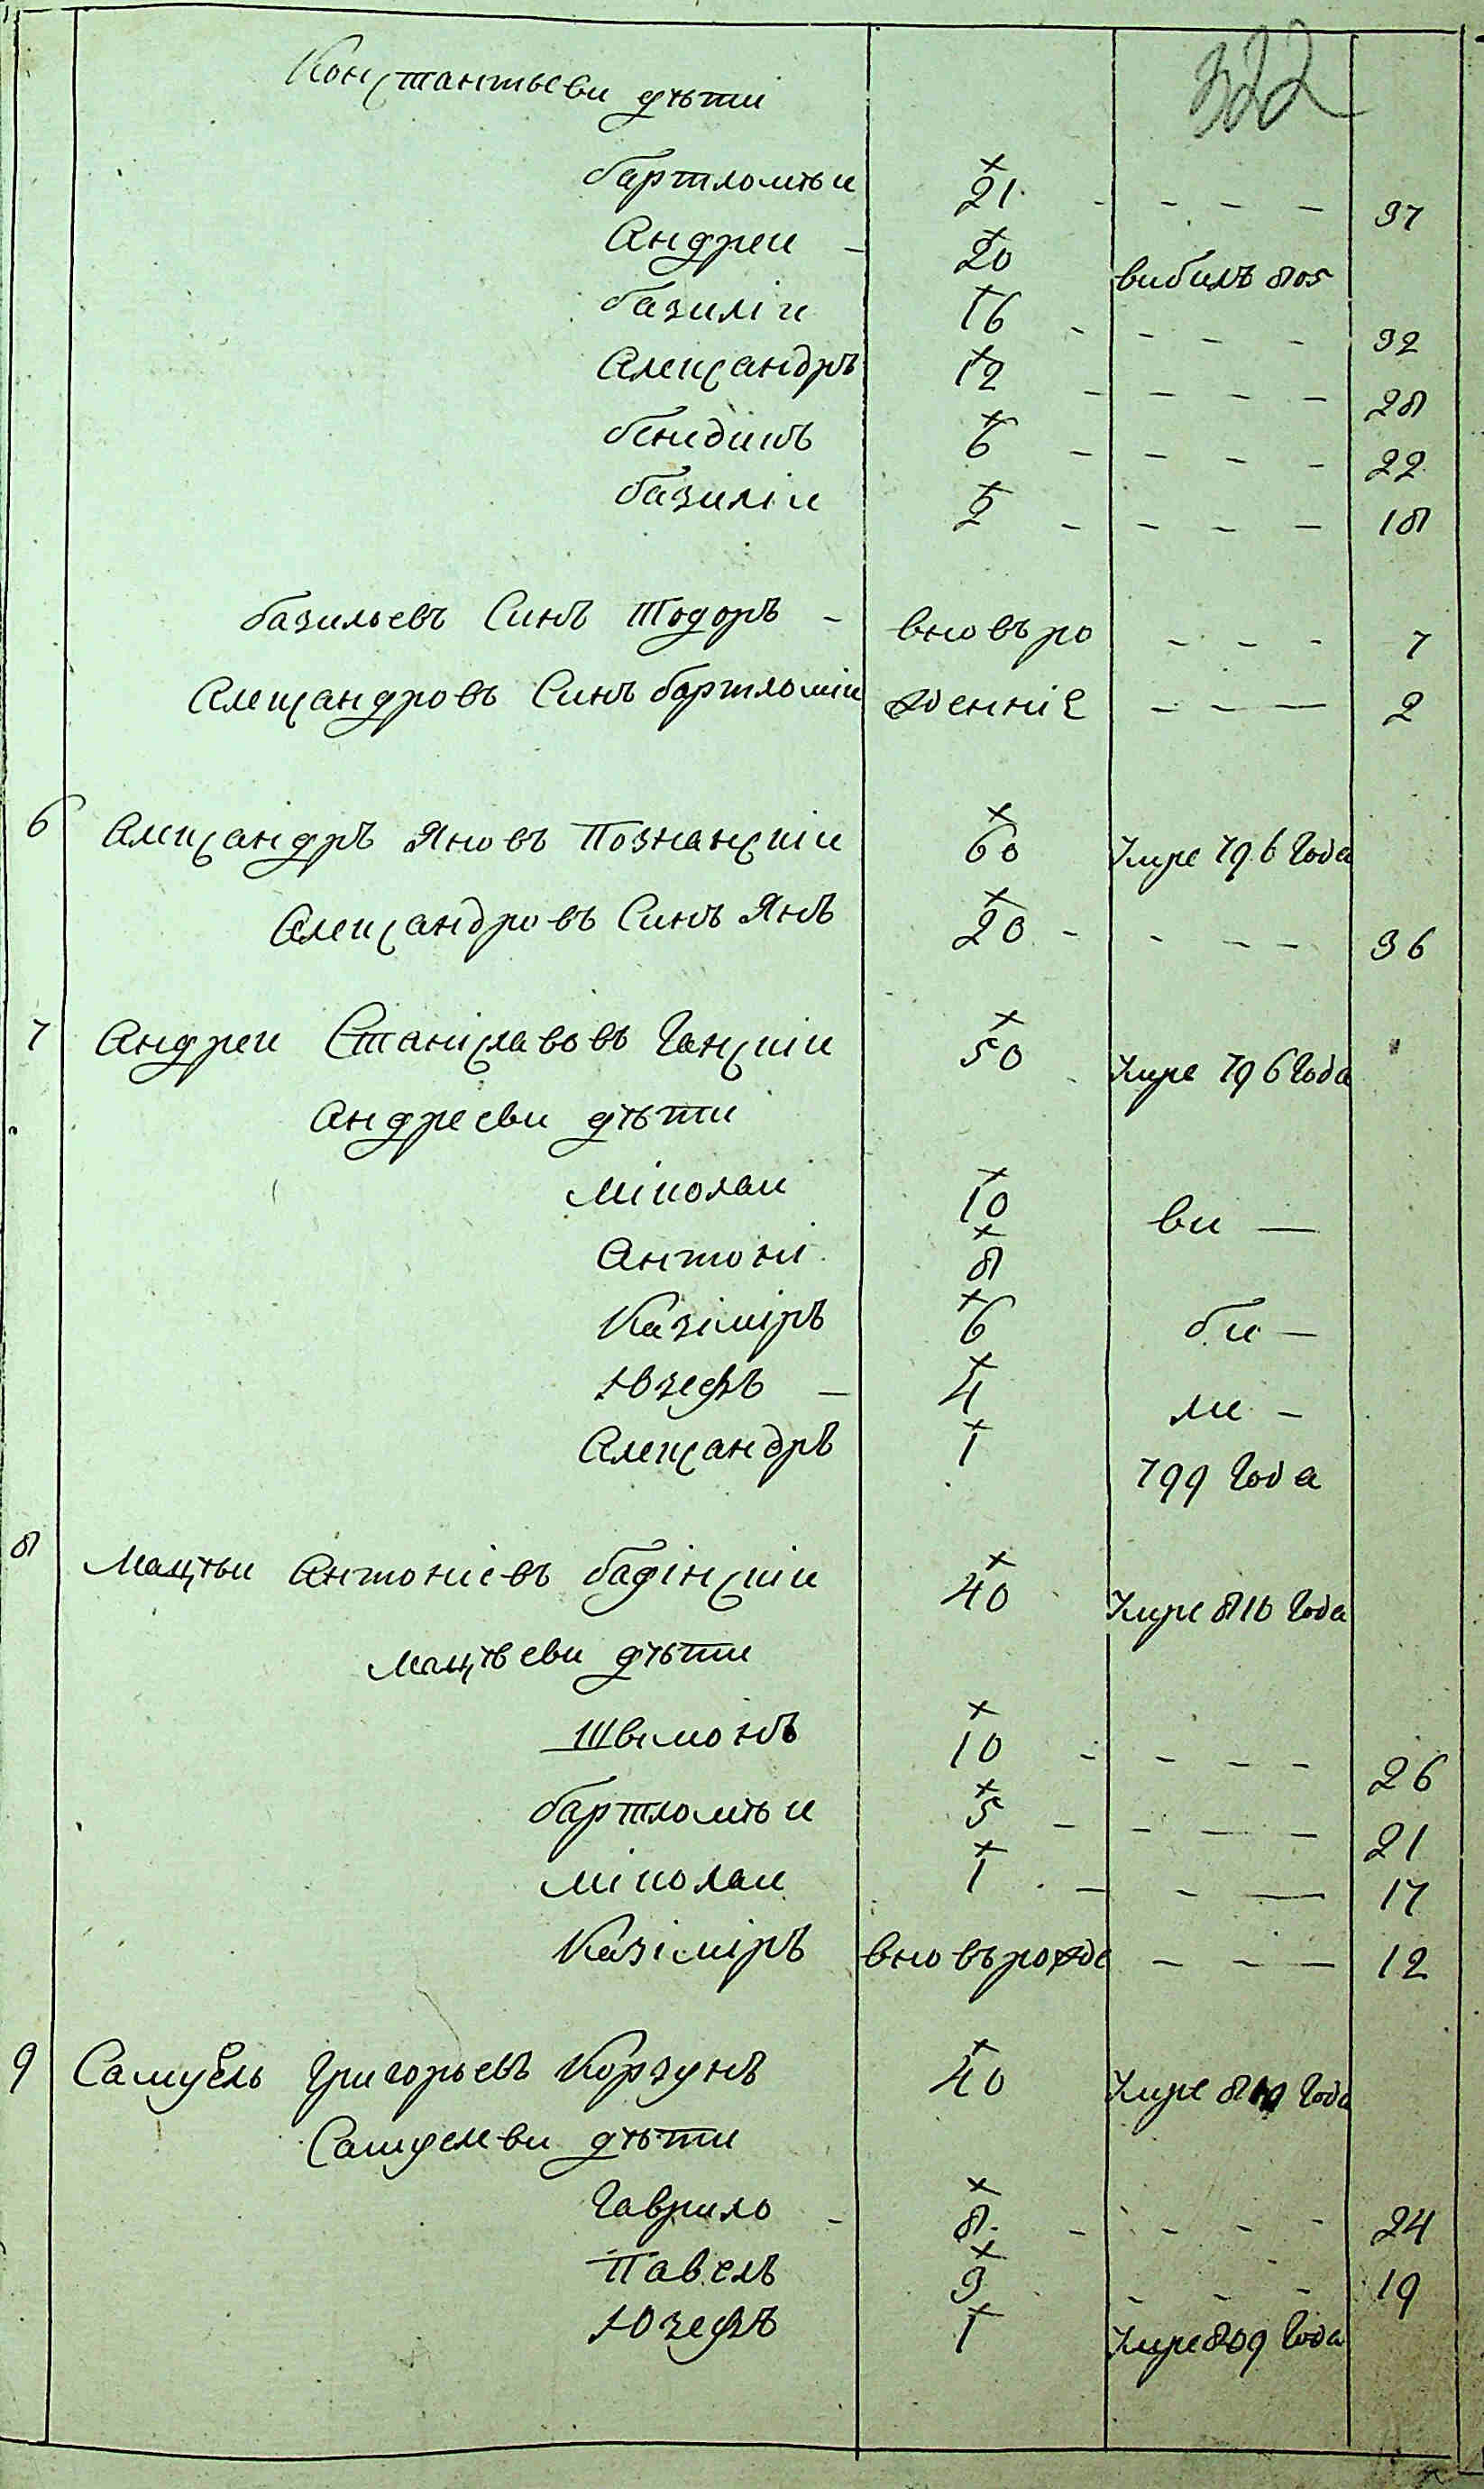 322
Константьеви дѣти
бартломѣи 21 - - - - 37
Андреи - 20 вибилъ 805
базиліи 16 - - - - 32
Александръ 12 - - - - 28
бенидикъ 6 - - - - 22
базиліи 2 - - - - 18
базильевъ Синъ Тодоръ - вновъ ро - - - 7
Александровъ Синъ бартломіи жденніе - - - 2
6 Александръ Яновъ Познанскіи 60 Умре 796 Года
Александровъ Синъ Янъ 20 - - - - 36
7 Андреи Станіславовъ Ганскіи 50 Умре 796 Года
Андрееви дѣти
Міколаи 10 ви -
Антоні 8
Казіміръ 6 би -
Юзефъ - 4 ли -
Александръ 1 799 Года
8 Мацѣи Антоніевъ бафінскіи 40 Умре 810 Года
Мацѣеви дѣти
Шимонъ 10 - - - - 26
бартломѣи 5 - - - - 21
Міколаи 1 - - - 17
Казіміръ вновъ рожде - - - 12
9 Самуель Григорьевъ Корзунъ 40 Умре Года
Самуелеви дѣти
Гаврило - 8 - - - - 24
Павелъ 3 - - - 19
Юзефъ 1 Умре 809 Года